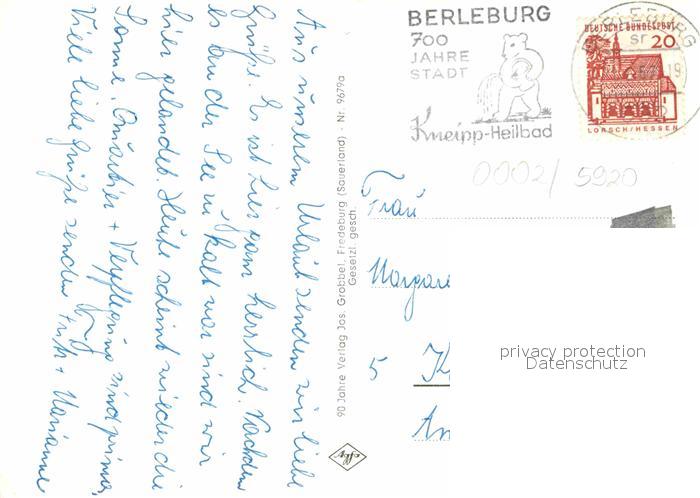 Aus unserem Urlaub senden wir liebe
Grüße. Es ist hier ganz herrlich. Nachdem
es an der See zu kalt war sind wir
hier gelandet. Heute scheint wieder die
Sonne. Quartier + Verpflegung sind prima.
Viele liebe Grüße senden Fritz + Marianne
90 Jahre Verlag Jos. Grobbel, Fredeburg (Sauerland) - Nr. 9679a
Gesetzl. gesch.
BERLEBURG
700
JAHRE
STADT
Kneipp-Heilbad
BERLEBURG
DEUTSCHE BUNDESPOST
20
LORSCH/HESSEN
0002/ 5920
Frau
Margare
5 K
An
privacy protection
Datenschutz